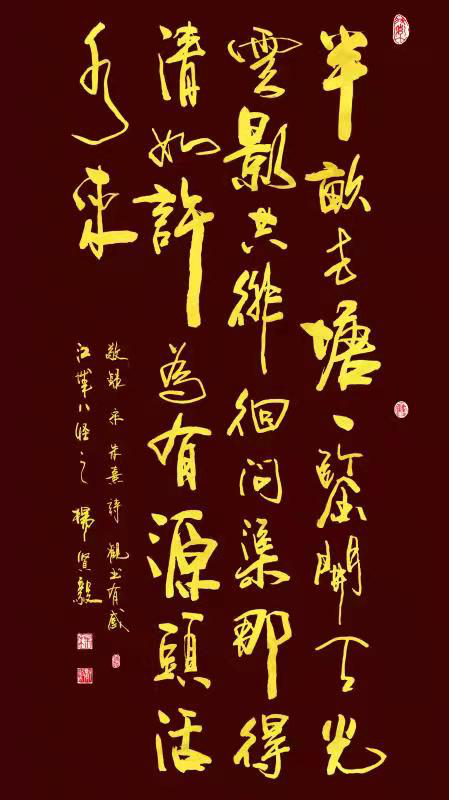 半畝方塘一鑒開天光
雲影共徘徊問渠那得
清如許為有源頭活
水來
敬録宋朱熹詩觀書有感
江華八怪之楊賢毅